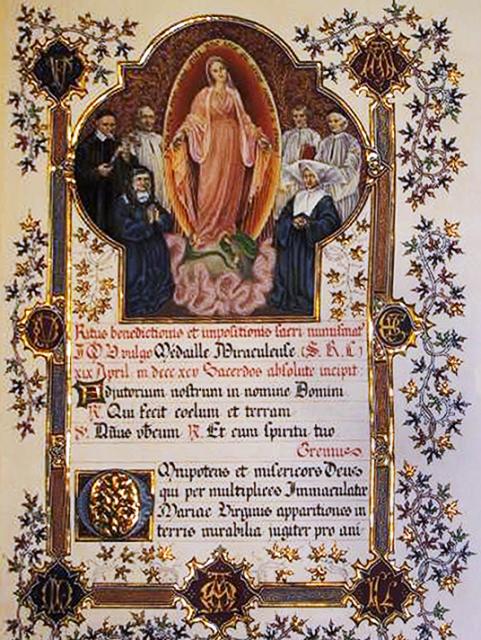 Ritus benedictionis et impositionis sacri numismat
vulgo Médaille Miraculeuse (S. R. C.)
xix April. m dccc xcv Sacerdos absolute incipit:
Adjutorium nostrum in nomine Domini
R. Qui fecit coelum et terram
Dñus vbcum R. Et cum spiritu tuo
Oremus
Omnipotens et misericors Deus
qui per multiplices Immaculatae
Mariae Virginis apparitiones in
terris mirabilia jugiter pro ani